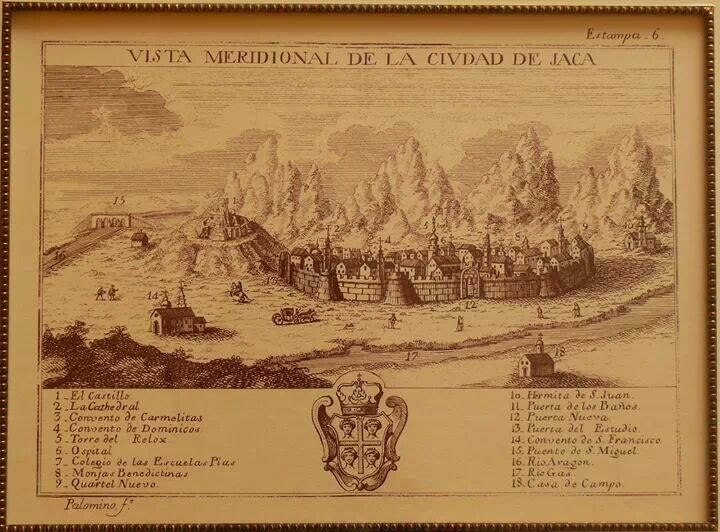 Estampa 6.
VISTA MERIDIONAL DE LA CIVDAD DE JACA
15
1
2
4
5
8
9
16
14
12
17
18
1 - El Castillo.
2 - La Cathedral
3 - Convento de Carmelitas
4 - Convento de Dominicos.
5 - Torre del Relox
6 - Ospital
7 - Colegio de las Escuelas Pias
8 - Monjas Benedictinas
9 - Quartel Nuevo.
10. Hermita de S. Juan.
11. Puerta de los Baños.
12. Puerta Nueva.
13. Puerta del Estudio.
14. Convento de S. Francisco
15. Puente de S. Miguel.
16. Rio Aragon.
17. Rio Gas.
18. Casa de Campo.
Palomino, f.t